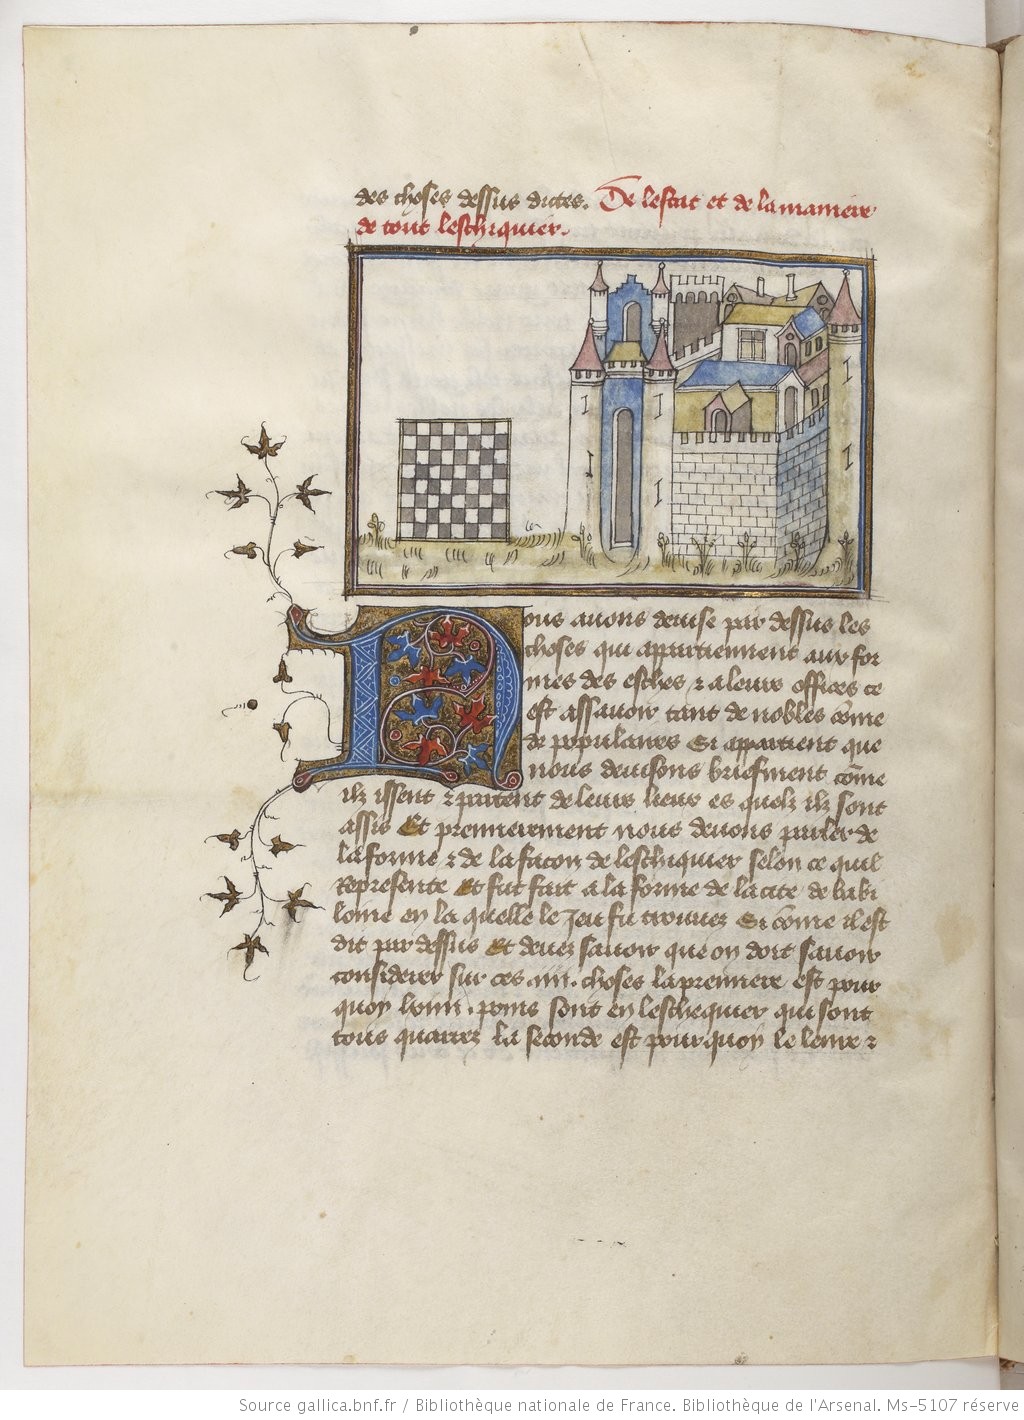 des choses dessus dictes. De lestat et de la maniere
de tout leschiquier.
Nous auons deuise par dessus les
choses qui appartiennent aux for
mes des esches ⁊ a leurs offices ce
est assauoir tant de nobles cōme
de populaires Si appartient que
nous deuisons briefment cōme
ilz issent ⁊ partent de leurs lieux es quelz ilz sont
assis Et premierement nous deuons parler de
la forme ⁊ de la facon de leschiquier selon ce quil
Represente Et fut fait a la forme de la cite de babi
loine en la quelle le Jeu fu trouuez Si cōme il est
dit par dessus Et deuez sauoir que on doit sauoir
considerer sur ces .iiii. choses la premiere est pour
quoy lxiiii . poins sont en leschequier qui sont
tous quarrez la seconde est pour quoy le leure ⁊
Source gallica.bnf.fr / Bibliothèque nationale de France. Bibliothèque de l'Arsenal. Ms-5107 réserve